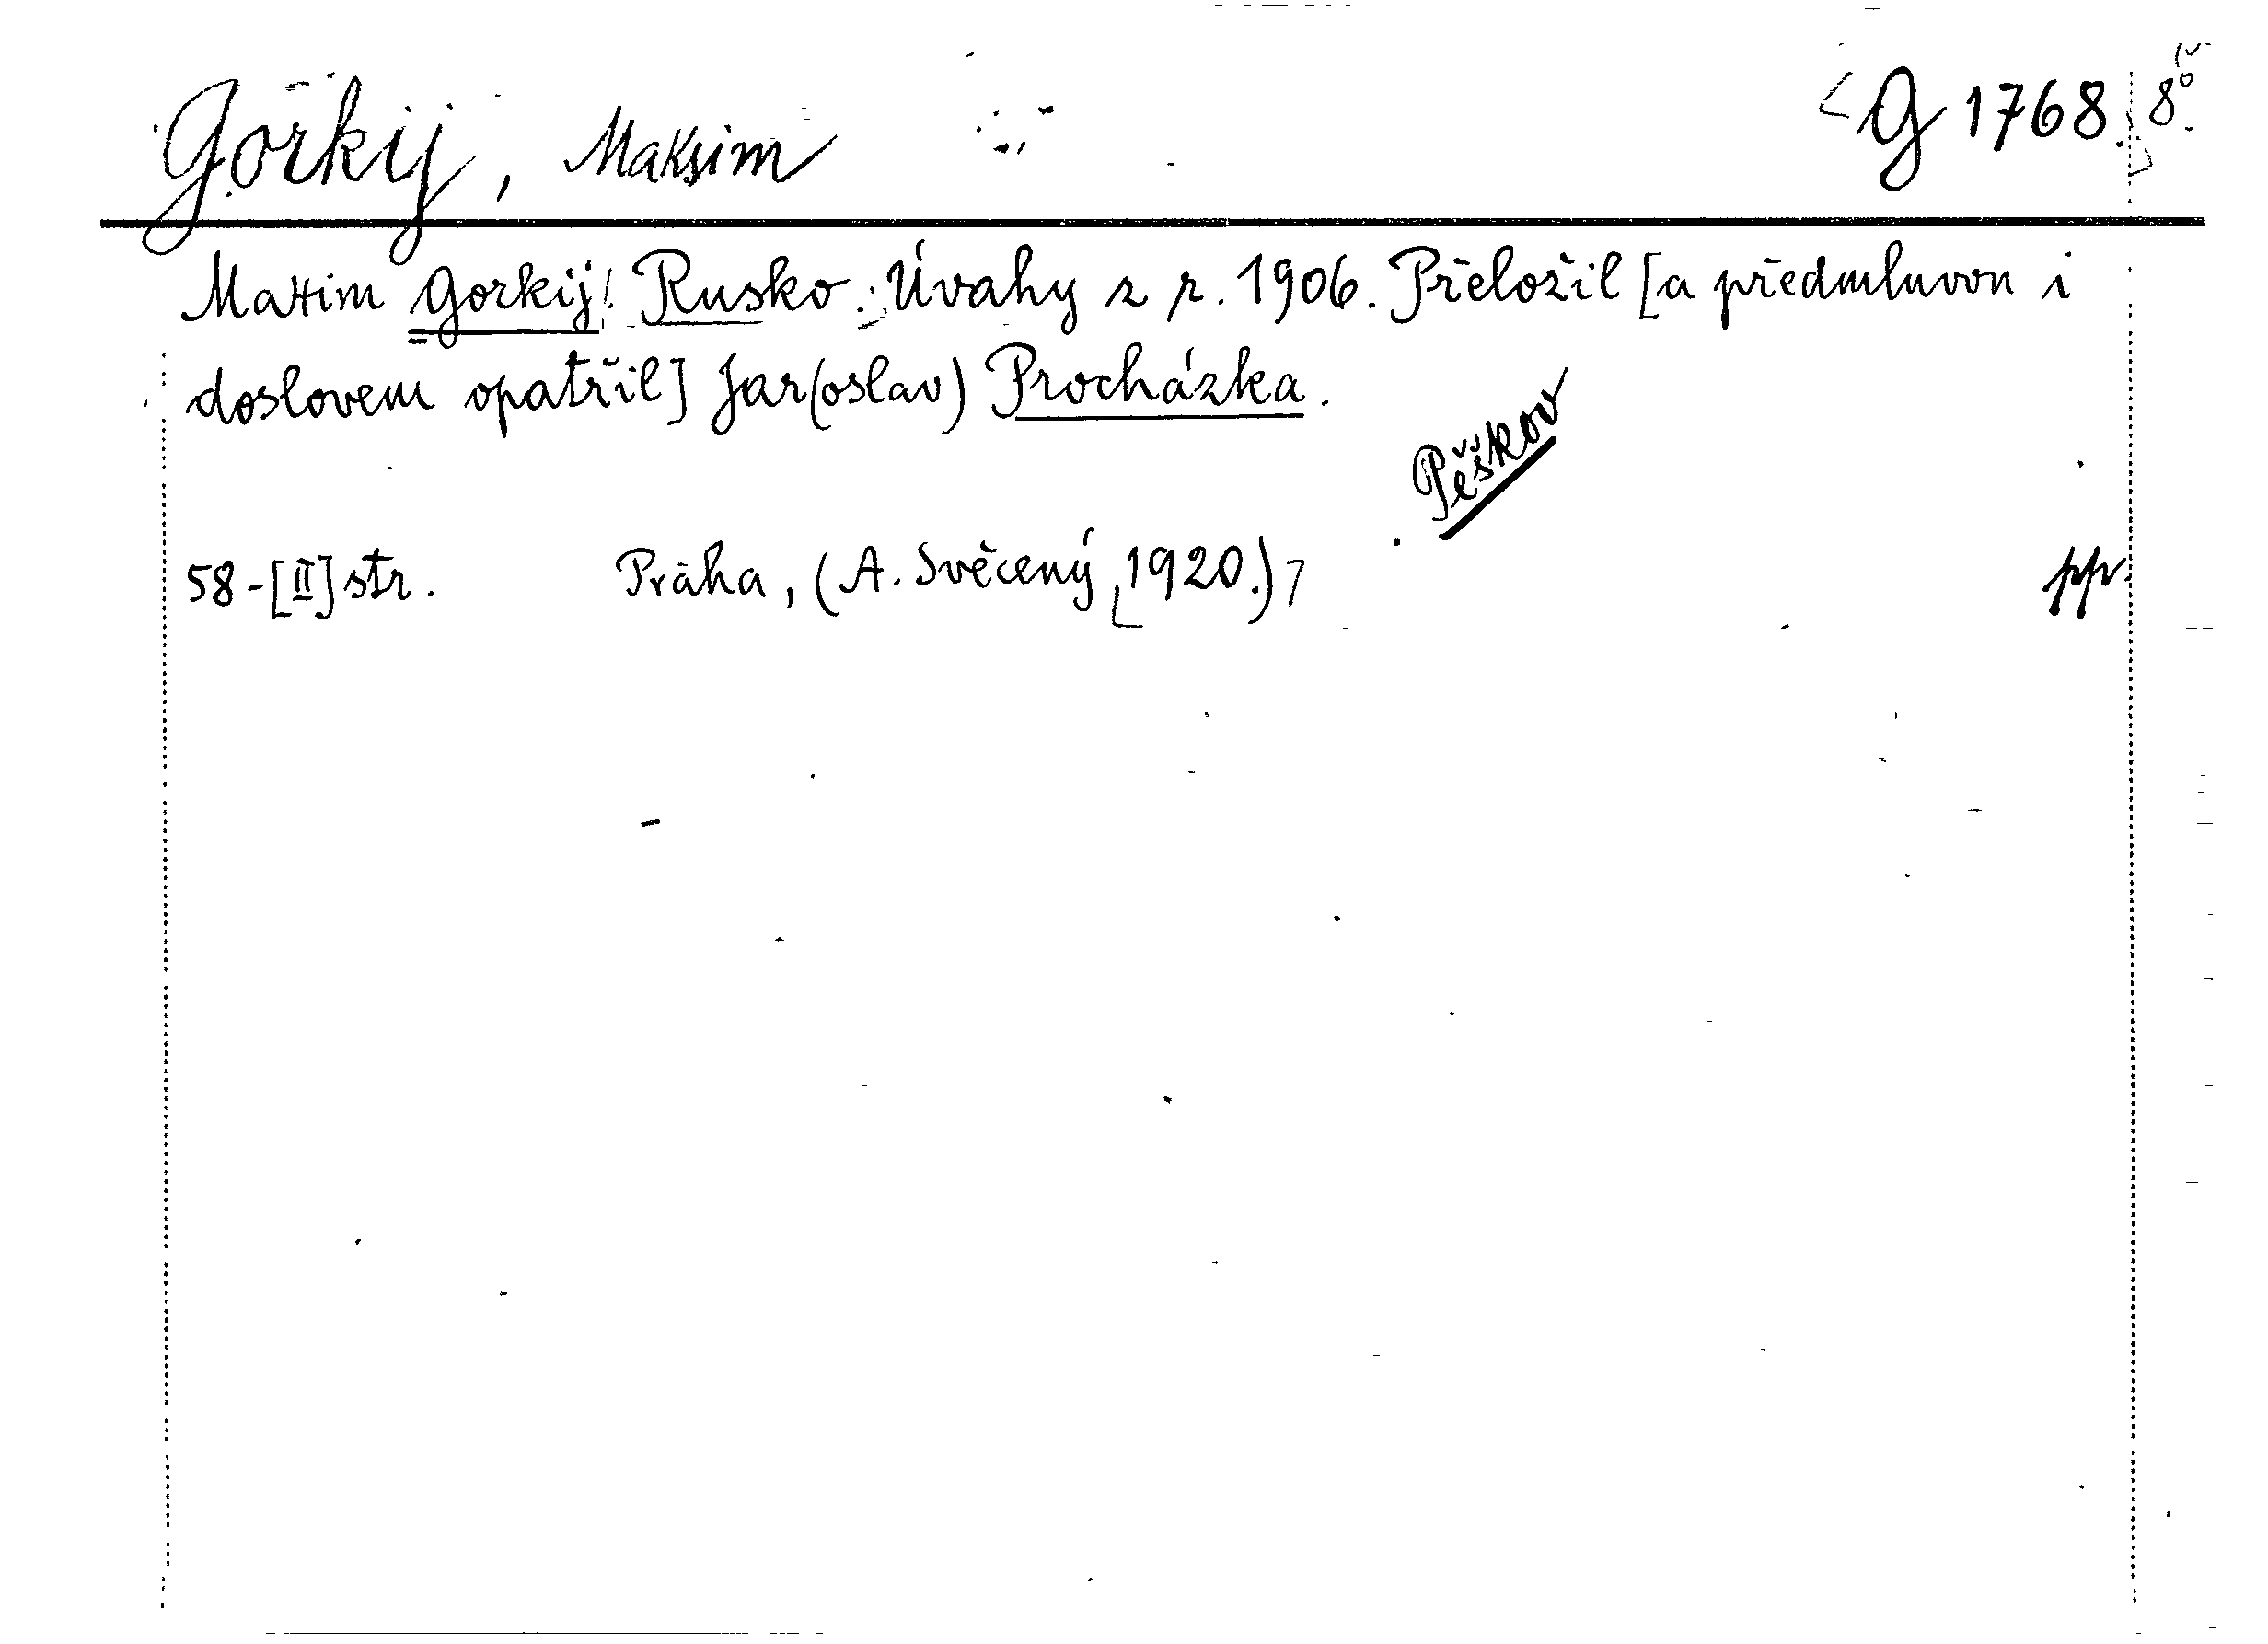 Gorkij, Maksim G 1768. 8°
Maxim Gorkij: Rusko. Úvahy z r. 1906. Přeložil [a předmluvou i
doslovem opatřil] Jar(oslav) Procházka.
Pěškov
58-[II] str. Praha, (A. Svěcený, [1920.)] pp.